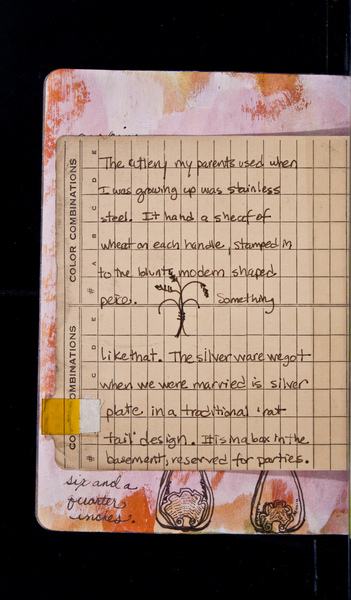 The cutlery my parents used when
I was growing up was stainless
steel. It hand a sheaf of
wheat on each handle, stamped in
to the blunt, modern shaped
peice. Something
like that. The silverware we got
when we were married is silver
plate in a traditional 'rat
tail' design. It is in a box in the
basement, reserved for parties.
six and a
quarter
inches.
COLOR COMBINATIONS
# A B C D E
COLOR COMBINATIONS
# C D E